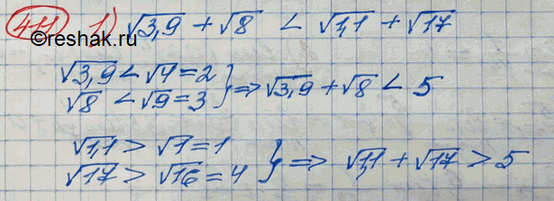 411 1) √3,9 + √8 < √1,1 + √17
©reshak.ru
√3,9 < √4 = 2
√8 < √9 = 3 } ⇒ √3,9 + √8 < 5
√1,1 > √1 = 1
√17 > √16 = 4 } ⇒ √1,1 + √17 > 5